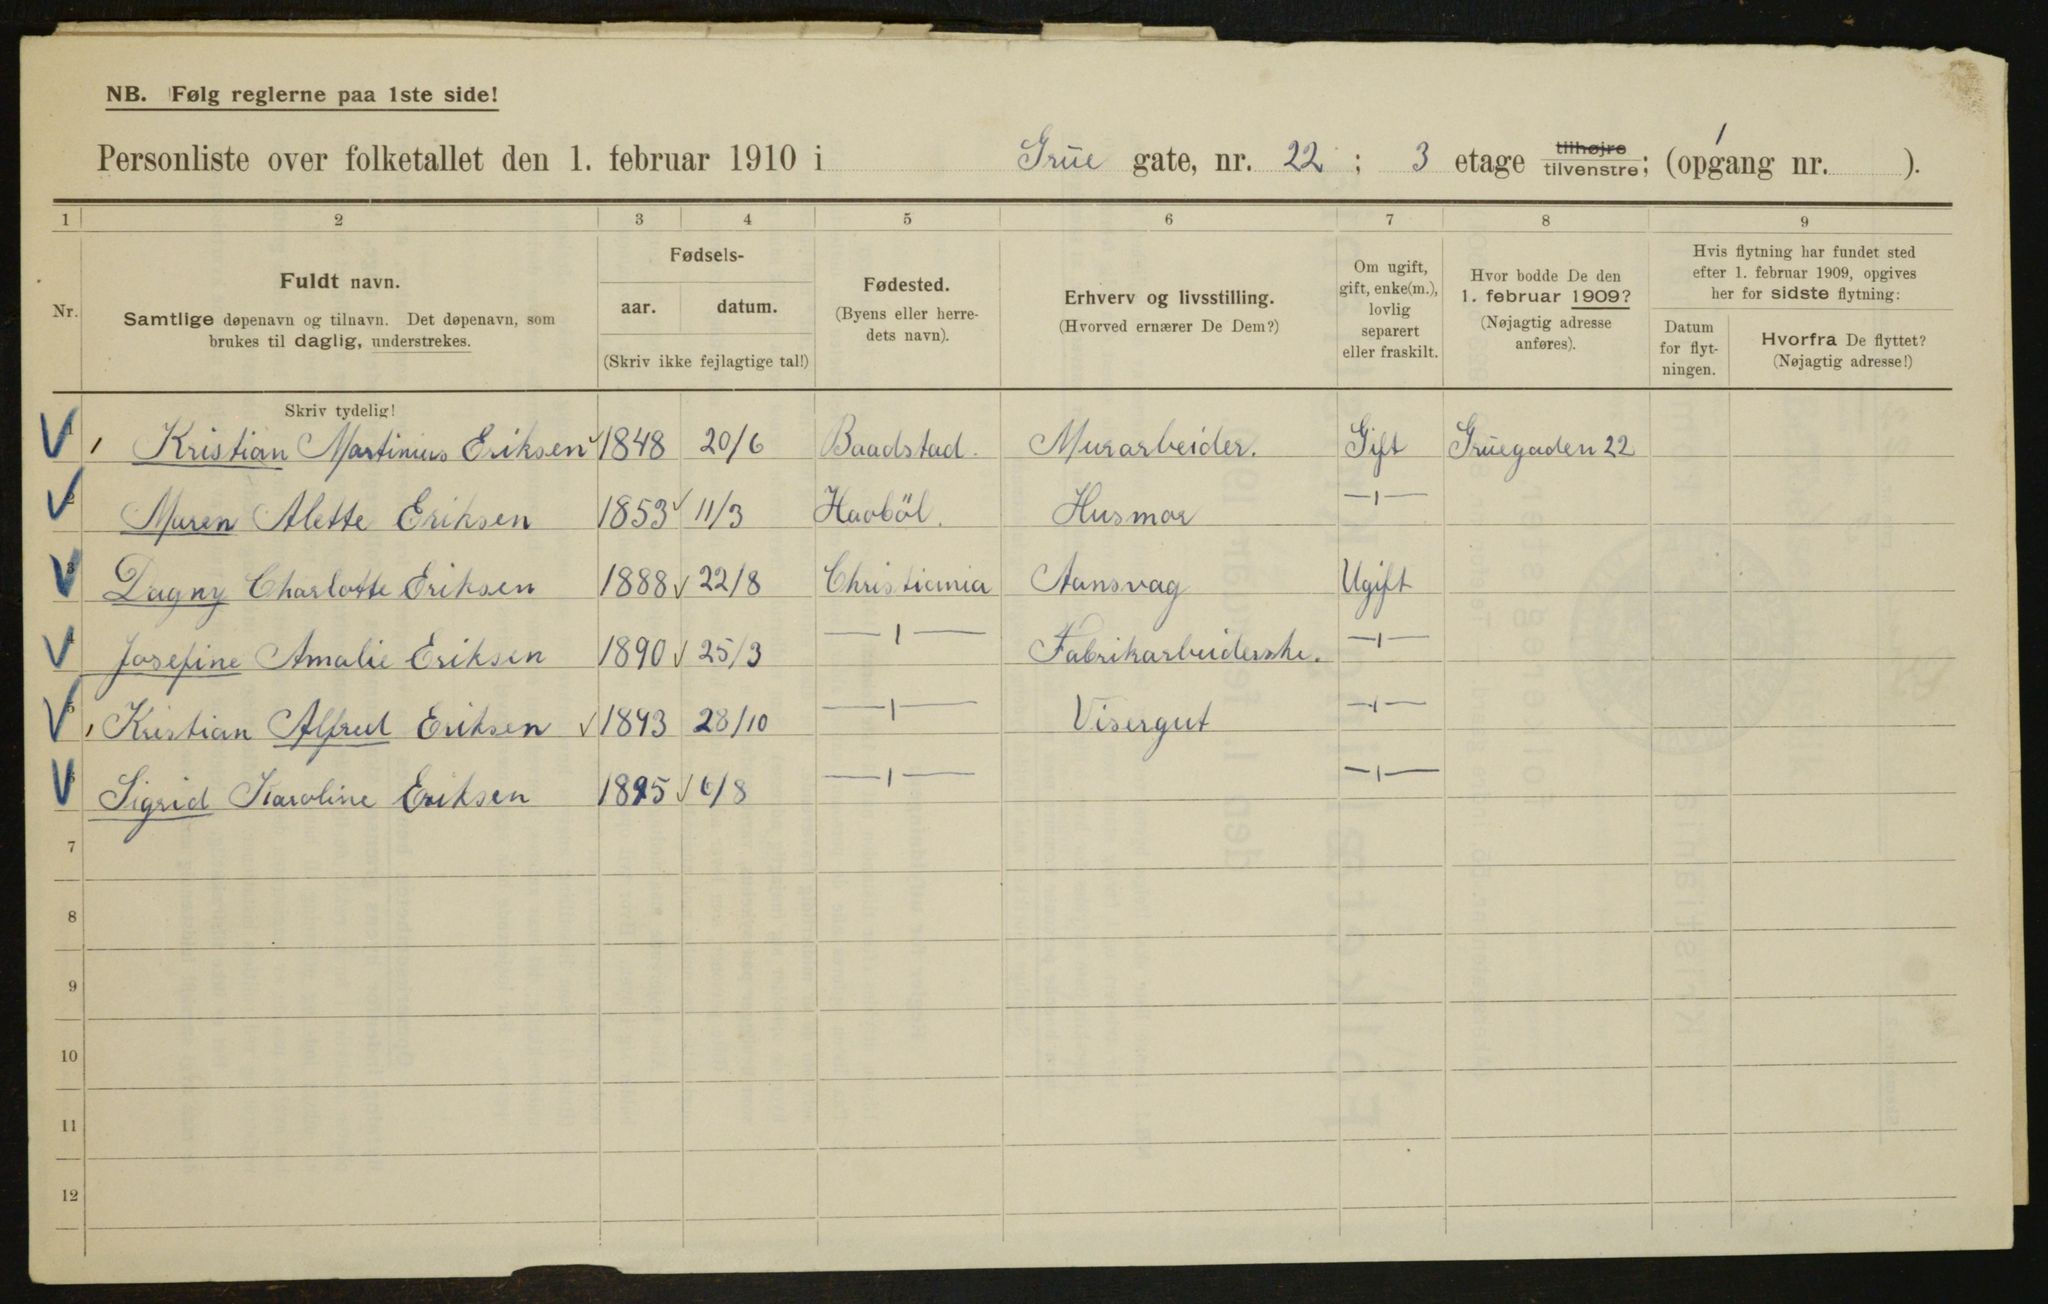 NB. Følg reglerne paa 1ste side!
Personliste over folketallet den 1. februar 1910 i Grüe gate, nr. 22 ; 3 etage tilhøjre tilvenstre; (opgang nr. 1 ).
1 2 3 4 5 6 7 8 9
Nr.
Fuldt navn.
Samtlige døpenavn og tilnavn. Det døpenavn, som
brukes til daglig, understrekes.
Fødsels-
aar. datum.
(Skriv ikke fejlagtige tal!)
Fødested.
(Byens eller herre-
dets navn).
Erhverv og livsstilling.
(Hvorved ernærer De Dem?)
Om ugift,
gift, enke(m.),
lovlig
separert
eller fraskilt.
Hvor bodde De den
1. februar 1909?
(Nøjagtig adresse
anføres).
Hvis flytning har fundet sted
efter 1. februar 1909, opgives
her for sidste flytning:
Datum
for flyt-
ningen.
Hvorfra De flyttet?
(Nøjagtig adresse!)
Skriv tydelig!
Kristian Martinius Eriksen 1848 20/6 Baadstad. Murarbeider. Gift Grüegaden 22
Maren Alette Eriksen 1853 11/3 Haaböl. Husmor —ı—
Dagny Charlotte Eriksen 1888 22/8 Christiania Aansvag Ugift
Josefine Amalie Eriksen 1890 25/3 —ı— Fabrikarbeiderske. —ı—
Kristian Alfred Eriksen 1893 28/10 —ı— Visergut —ı—
Sigrid Karoline Eriksen 1895 6/8 —ı— —ı—
7
8
9
10
11
12